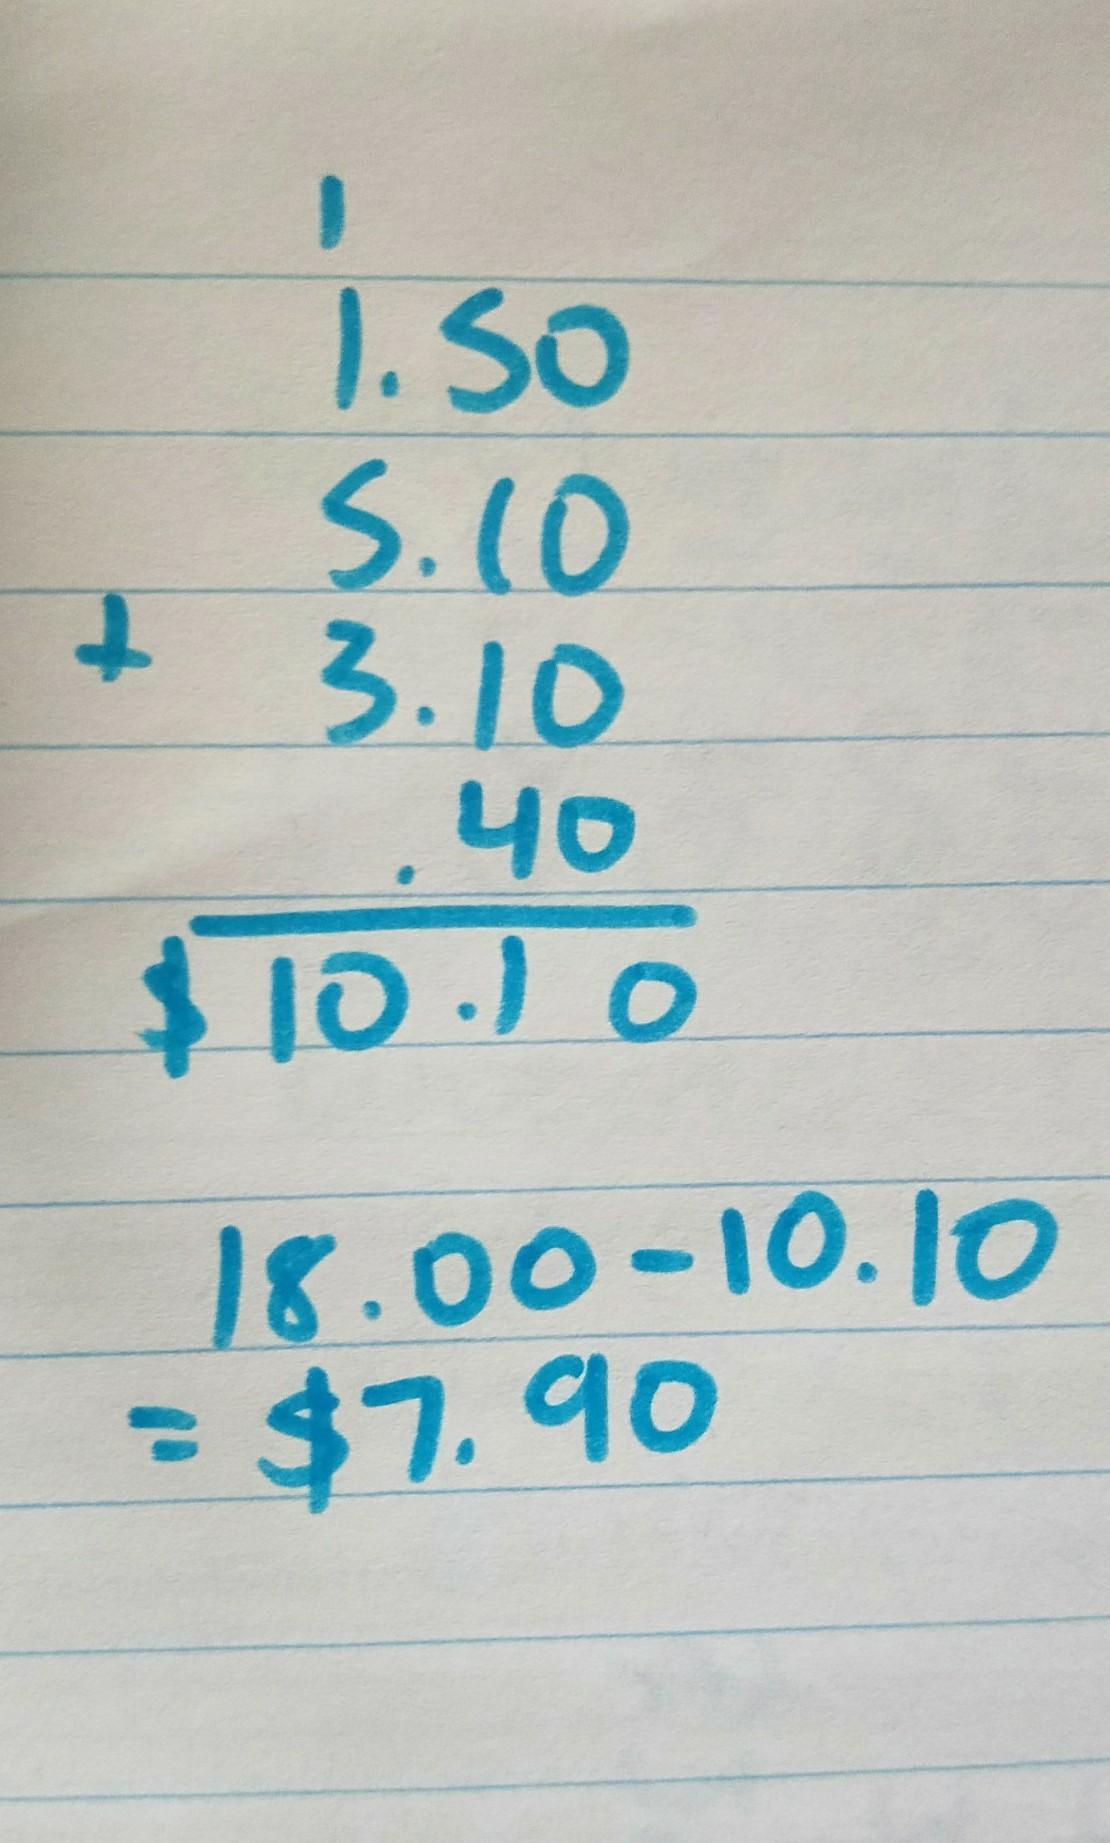 1
1.50
5.10
+ 3.10
.40
$10.10
18.00-10.10
= $7.90